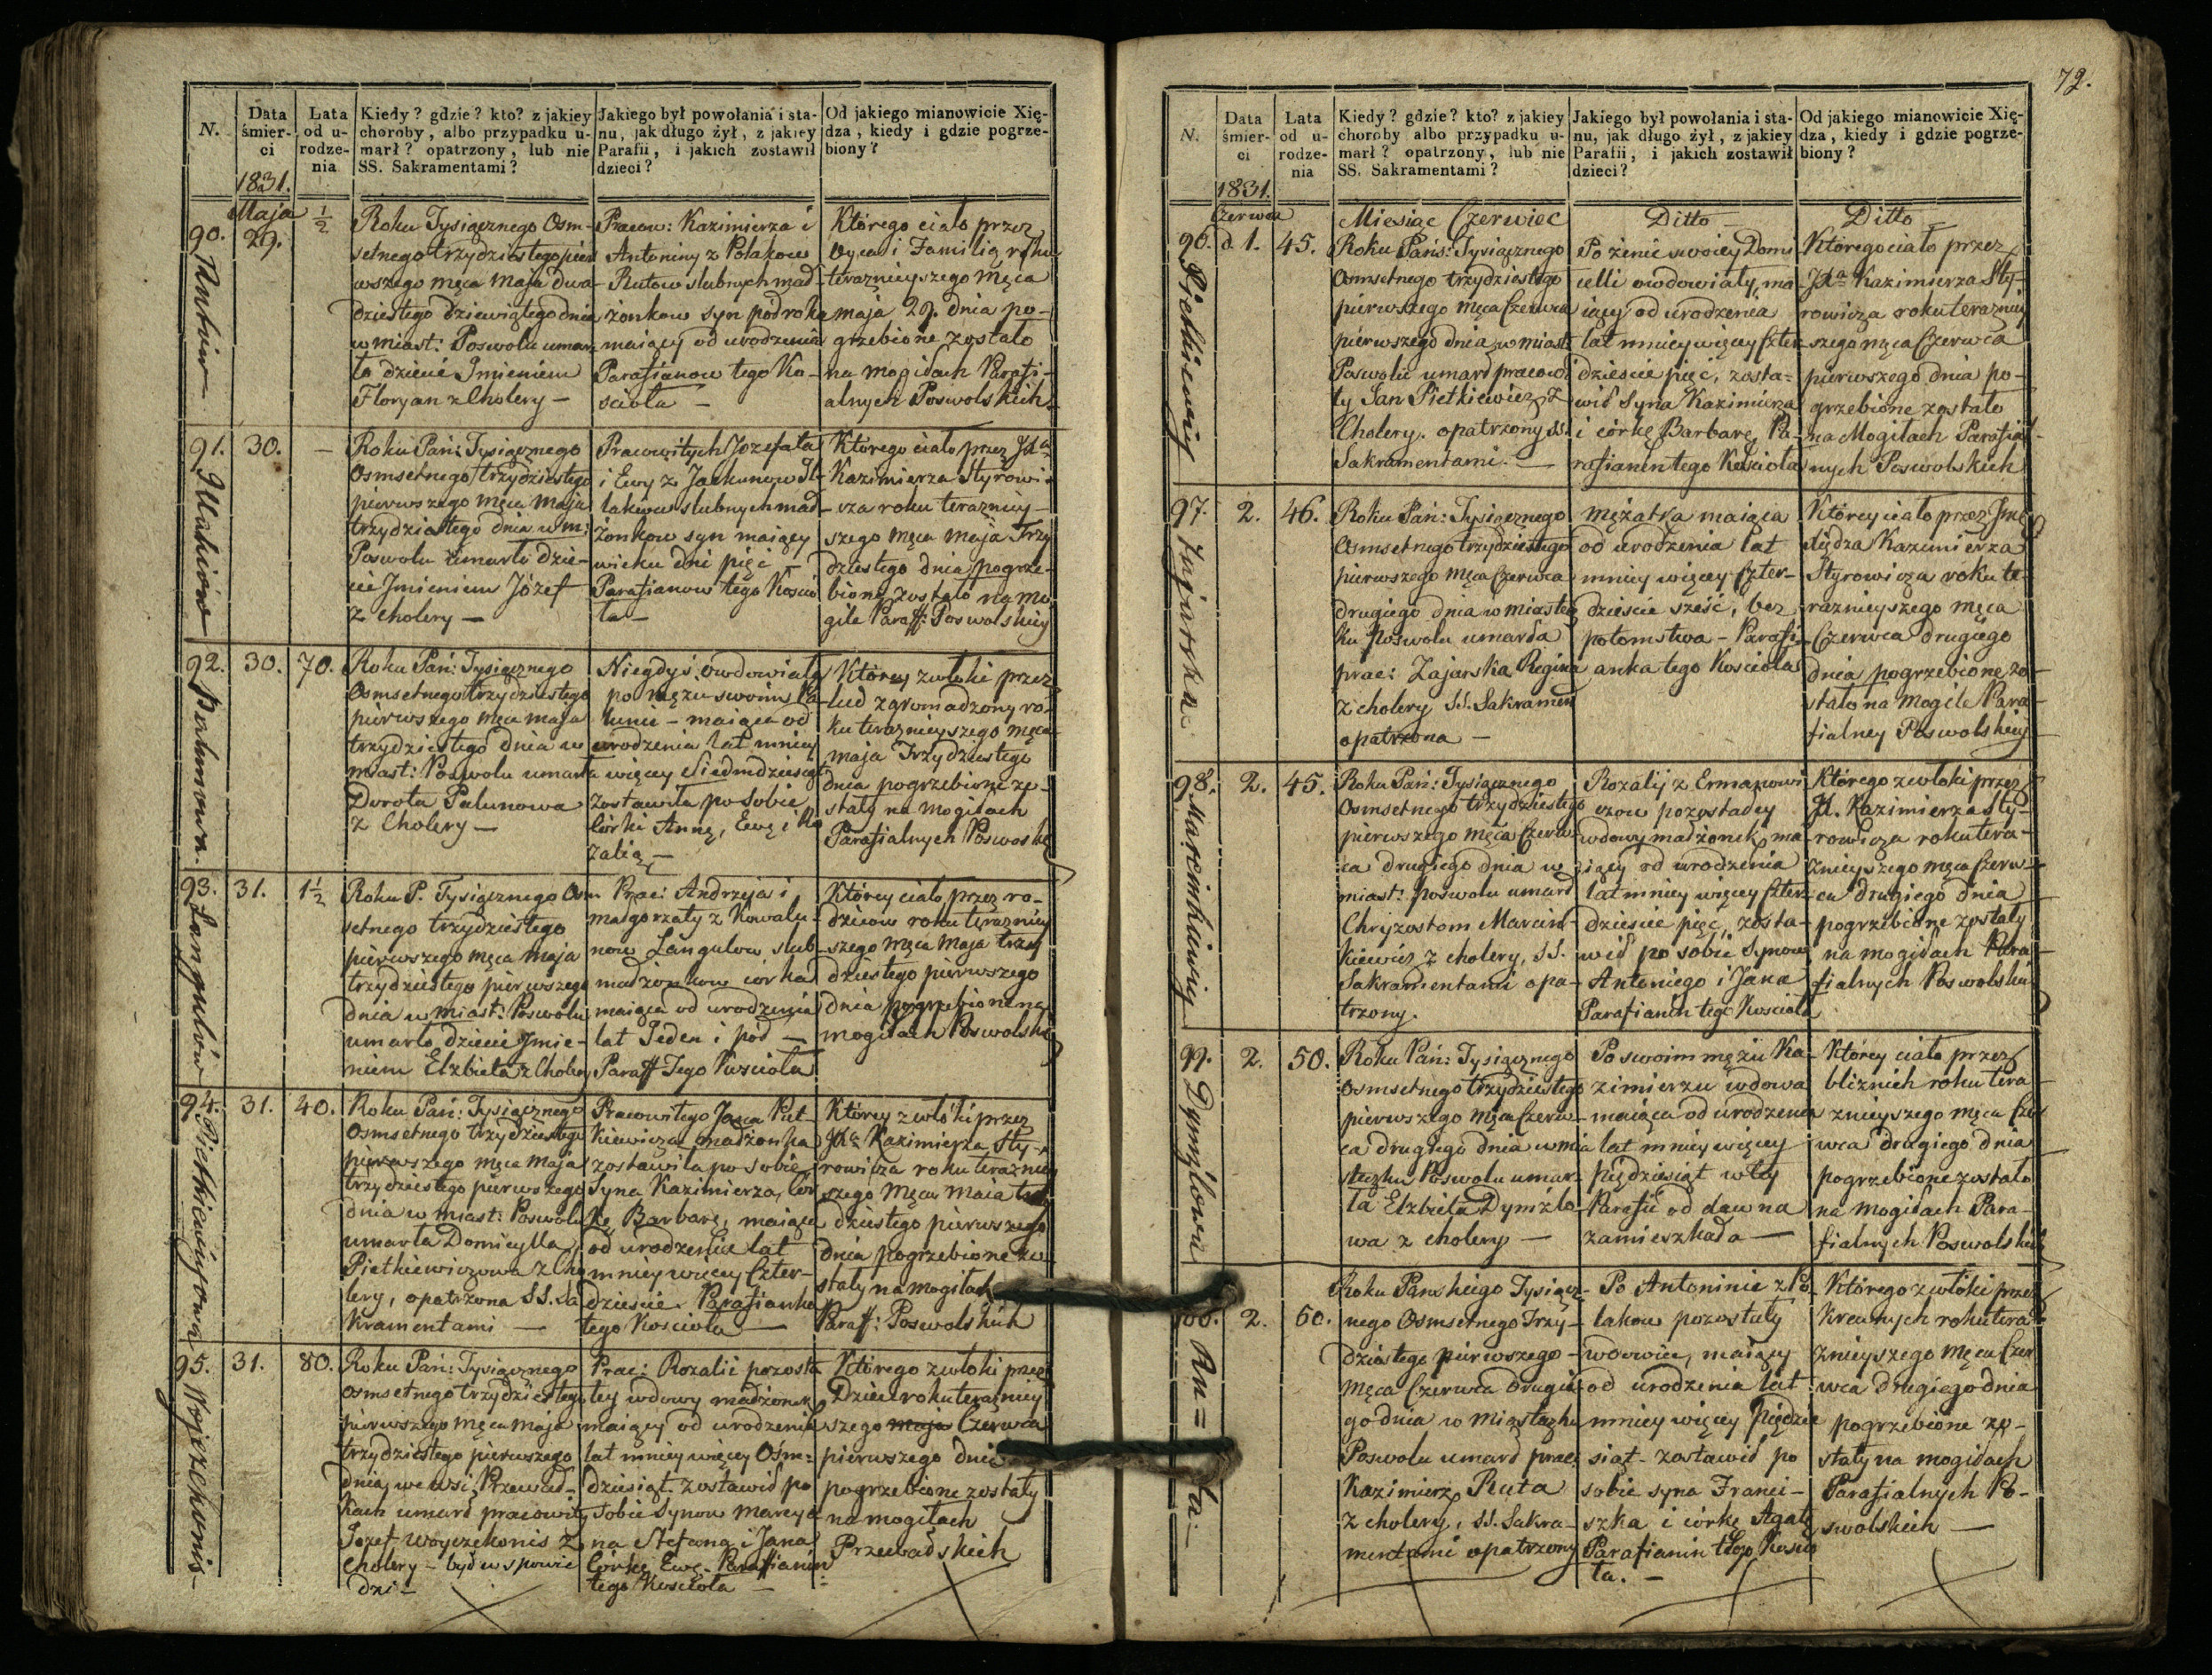 N.
Data śmier- ci
1831.
Lata od u- rodze- nia
Kiedy? gdzie? kto? z jakiey
choroby, albo przypadku u-
marł? opatrzony, lub nie
SS. Sakramentami?
Jakiego był powołania i sta-
nu, jak długo żył, z jakiey
Parafii, i jakich zostawił
dzieci?
Od jakiego mianowicie Xię-
dza, kiedy i gdzie pogrze-
biony?
90.
Maja
29.
½
Roku Tysiącznego Osm-
setnego trzydziestego pier
wszego męca Maja dwa-
dziestego dziewiątego dnia
w miast: Poswolu umar-
ło dziecie Jmieniem
Floryan z Cholery —
Pracow: Kazimierza i
Antoniny z Polakow
Rutow slubnych mał-
żonkow syn pod roku
maiący od urodzenia
Parafianow tego Ko-
scioła —
Którego ciało przez
Oyca i Familią roku
teraznieyszego męca
maja 29. dnia po-
grzebione zostało
na mogiłach Parafi-
alnych Poswolskich
91.
30.
—
Roku Pań: Tysiącznego
Osmsetnego trzydziestego
pierwszego męca Maja
trzydziestego dnia w m:
Poswolu umarło dzie-
cie Jmieniem Józef
z cholery —
Pracowitych Jozefata
i Ewy z Jaskunow
slubnych mał-
żonkow syn maiący
wieku dni pięć —
Parafianow tego Kościo
ła —
Którego ciało przez Jxa
Kazimierza Styrowi-
cza roku terazniey-
szego męca maja Trzy
dziestego dnia pogrze-
bione zostało na mo
gile Paraff: Poswolskiey
92.
Palunowa
30.
70.
Roku Pań: Tysiącznego
Osmsetnego trzydziestego
pierwszego męca maja
trzydziestego dnia w
miast: Poswolu umarła
Dorota Palunowa
z Cholery —
Niegdyś owdowiała
po mężu swoim Pa-
lunie — maiąca od
urodzenia lat mniey
więcey Siedmdziesiąt
zostawiła po sobie
Córki Annę, Ewę i Ro
zalię —
Którey zwłoki przez
lud zgromadzony ro-
ku teraznieyszego męca
maja Trzydziestego
dnia pogrzebione zo-
stały na mogiłach
Parafialnych Poswolskich
93.
Langułow
31.
1½
Roku P. Tysiącznego Osm
setnego trzydziestego
pierwszego męca maja
trzydziestego pierwszego
dnia w miast: Poswolu
umarło dziecie Jmie-
niem Elzbieta z Cholery
Prac: Andrzeja i
małgorzaty z Kowalu-
now Langulow slub
małżonkow córka
maiąca od urodzenia
lat Jeden i poł —
Paraff Tego Kościoła
Którey ciało przez ro-
dzicow roku terazniey
szego męca Maja trzy
dziestego pierwszego
dnia pogrzebione na
mogiłach Poswolskich
94.
Pietkiewiczowa
31.
40.
Roku Pań: Tysiącznego
Osmsetnego trzydziestego
pierwszego męca maja
trzydziestego pierwszego
dnia w miast: Poswolu
umarła Domicylla
Pietkiewiczowa z Cho
lery, opatrzona SS. Sa
kramentami —
Pracowitego Jana Piet-
kiewicza małżonka
zostawiła po sobie
Syna Kazimierza, Cor
kę Barbarę, maiąca
od urodzenia lat
mniey więcey Czter-
dzieście. Parafianka
tego Kościoła —
Którey zwłoki przez
Jxa Kazimierza Sty-
rowicza roku teraznie
szego męca Maia trzy
dziestego pierwszego
dnia pogrzebione zo
stały na mogiłach
Paraff: Poswolskich
95.
Woyczekonis —
31.
80.
Roku Pań: Tysiącznego
osmsetnego trzydziestego
pierwszego męca maja
trzydziestego pierwszego
dnia, we wsi Przewad-
kach umarł pracowity
Jozef Woyczekonis z
Cholery — był w spowie
dzi —
Prac: Rozalii pozosta
łey wdowy małżonek
maiący od urodzenia
lat mniey więcey Ośm-
dziesiąt. zostawił po
sobie Synow Marcya
na Stefana i Jana
Córkę Ewę. Paraffianin
tego Kościoła —
Którego zwłoki przez
Dzieci roku terazniey
szego maja Czerwca
pierwszego dnia
pogrzebione zostały
na mogiłach
Przewadskich
72.
N.
Data śmier- ci
1831.
Lata od u- rodze- nia
Kiedy? gdzie? kto? z jakiey
choroby albo przypadku u-
marł? opatrzony, lub nie
SS. Sakramentami?
Jakiego był powołania i sta-
nu, jak długo żył, z jakiey
Parafii, i jakich zostawił
dzieci?
Od jakiego mianowicie Xię-
dza, kiedy i gdzie pogrze-
biony?
Czerwca
Miesiąc Czerwiec
Ditto —
Ditto —
96.
Pietkiewicz
d. 1.
45.
Roku Pańs: Tysiącznego
Osmsetnego trzydziestego
pierwszego męca Czerwca
pierwszego dnia, w miast:
Poswolu umarł pracowi
ty Jan Pietkiewicz z
Cholery. opatrzony SS.
Sakramentami. —
Po żenie swoiey Domi
celli owdowiały, ma
iący od urodzenia
lat mniey więcey Czter
dzieście pięć, zosta-
wił Syna Kazimierza
i córkę Barbarę, Pa-
rafianin tego Kościoła
Którego ciało przez
Jxa Kazimierza Sty-
rowicza roku terazniey
szego męca Czerwca
pierwszego dnia po-
grzebione zostało
na Mogiłach Parafial-
nych Poswolskich
97.
Zajarska
2.
46.
Roku Pań: Tysiącznego
Osmsetnego trzydziestego
pierwszego męca Czerwca
drugiego dnia w miastecz
ku Poswolu umarła
prac: Zajarska Regina
z cholery SS. Sakramen
opatrzona —
mężatka maiąca
od urodzenia lat
mniey więcey Czter-
dzieście sześć, bez
potomstwa — Parafi-
anka tego Kościoła
Którey ciało przez Jmć
Xiędza Kazimierza
Styrowicza roku te-
raznieyszego męca
Czerwca drugiego
dnia pogrzebione zo-
stało na Mogile Para-
fialney Poswolskiey
98.
Marcinkiewicz
2.
45.
Roku Pań: Tysiącznego
Osmsetnego trzydziestego
pierwszego męca Czerw-
ca drugiego dnia w
miast: Poswolu umarł
Chryzostom Marcin-
kiewicz z cholery, SS.
Sakramentami opa-
trzony.
Rozalij z Ermanowi
czow pozostałey
wdowy małżonek, ma
iący od urodzenia
lat mniey więcey Czter-
dzieście pięć, zosta-
wił po sobie Synow
Antoniego i Jana
Parafianin tego Kościoła
Którego zwłoki przez
Jx. Kazimierza Sty-
rowicza roku tera-
znieyszego męca Czerw-
ca drugiego dnia
pogrzebione zostały
na mogiłach Para-
fialnych Poswolskich
99.
Dymżowa
2.
50.
Roku Pań: Tysiącznego
Osmsetnego trzydziestego
pierwszego męca Czerw-
ca drugiego dnia w mia
steczku Poswolu umar-
ła Elzbieta Dymżo-
wa z cholery —
Po swoim mężu Ka-
zimierzu wdowa
maiąca od urodzenia
lat mniey więcey
pięćdziesiąt w tey
Parafii od dawna
zamieszkała —
Którey ciało przez
bliznich roku tera
znieyszego męca Czer
wca drugiego dnia
pogrzebione zostało
na mogiłach Para-
fialnych Poswolskich
100.
Ru=ta —
2.
60.
Roku Pańskiego Tysiącz-
nego Osmsetnego Trzy-
dziestego pierwszego
Męca Czerwca drugie
go dnia w Miasteczku
Poswolu umarł prac:
Kazimierz Ruta
z cholery, SS. Sakra-
mentami opatrzony
Po Antoninie z Po-
lakow pozostały
wdowiec, maiący
od urodzenia lat
mniey więcey pięćdzie
siąt — zostawił po
sobie syna Franci-
szka i córkę Agatę
Parafianin tego Koscio
ła. —
Którego zwłoki przez
krewnych roku tera
znieyszego Męca Czer
wca drugiego dnia
pogrzebione zo-
stały na mogiłach
Parafialnych Po-
swolskich —